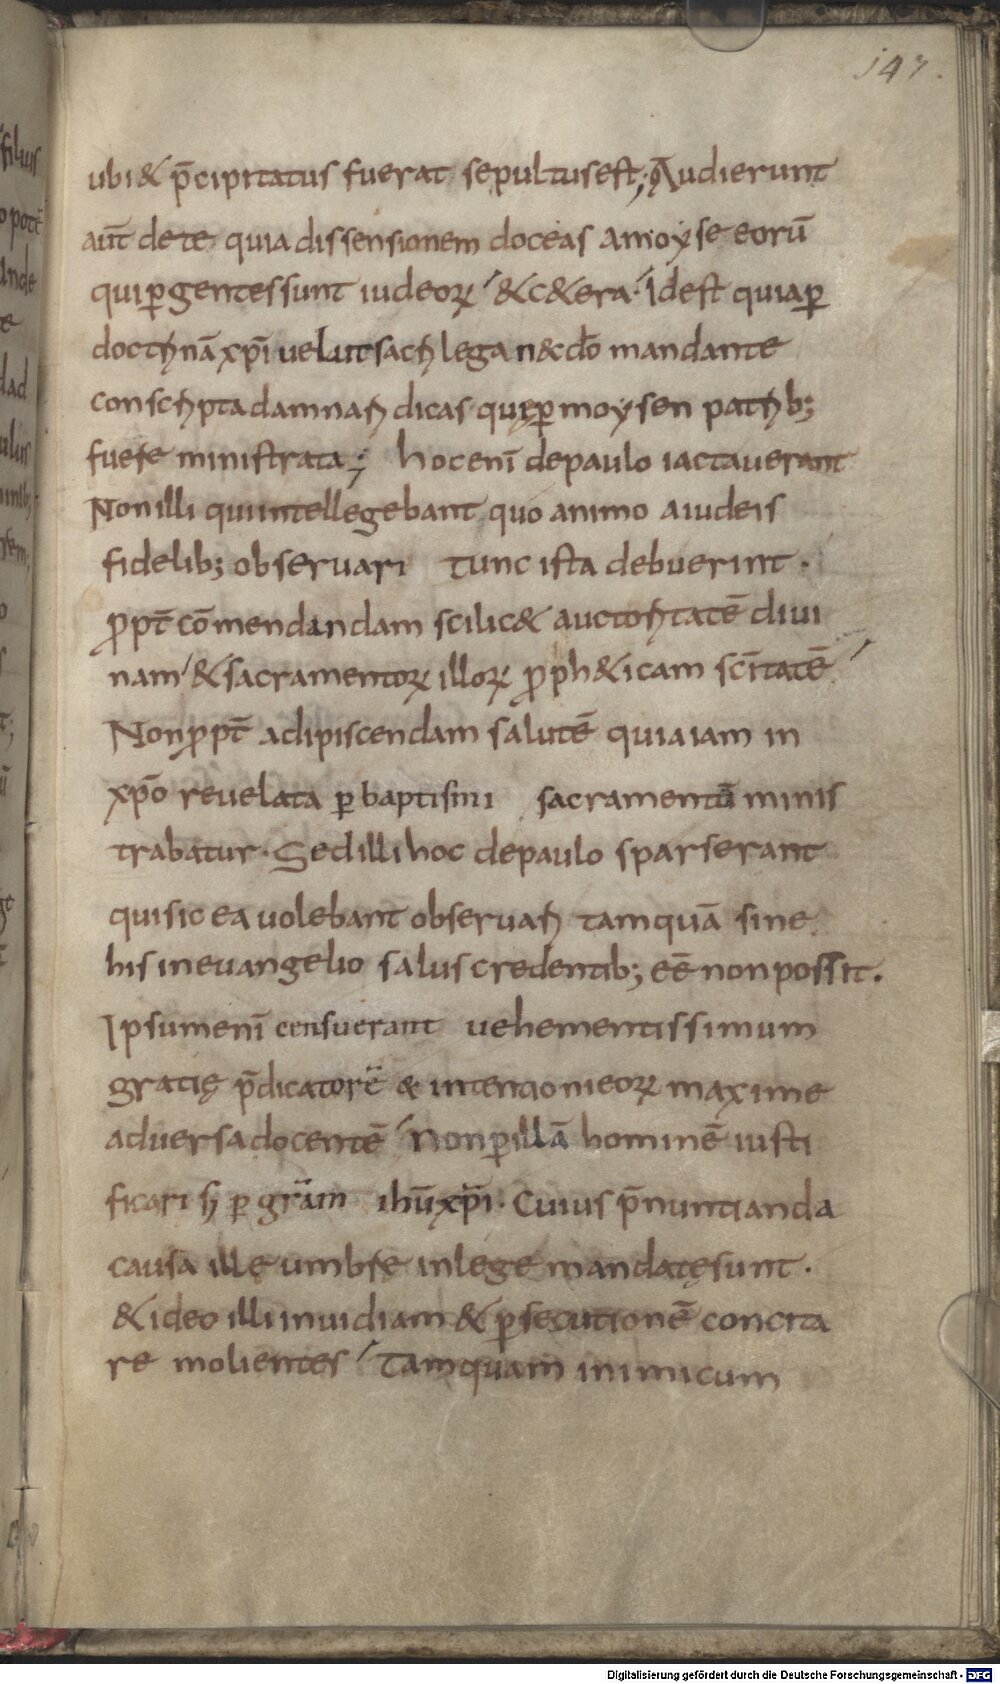 147.
ubi & p̄cipitatus fuerat sepultus est; Audierunt
aut̄ de te quia dissensionem doceas a moyse eorū
qui ꝑ gentes sunt iudeoꝝ & c&era. Idest quia ꝑ
doctrinā xp̄i uelut sacrilega n& do mandante
conscripta damnari dicas quę ꝑ moysen patrib;
fuere ministrata; hoc eni̅ de paulo iactauerant
Non illi qui intellegebant quo animo a iudeis
fidelib; obseruari tunc ista debuerint.
ꝓpt̄ cōmendandam scilic& auctoritatē diui
nam & sacramentoꝝ illoꝝ ꝓph&icam scītatē
Non ꝓpt̄ adipiscendam salutē quia iam in
xp̄o reuelata ꝑ baptismi sacramentū minis
trabatur. Sed illi hoc de paulo sparserant
qui sic ea uolebant obseruari tamquā sine
his in euangelio salus credentib; eē non possit.
Ipsum eni̅ censuerant uehementissimum
gratię p̄dicatorē & intentioni eoꝝ maxime
aduersa docentē Non ꝑ illā hominē iusti
ficari s; ꝑ gr̄am ihū xp̄i. Cuius p̄nuntianda
causa ille umbre in lege mandatę sunt.
& ideo illi inuidiam & ꝑsecutionē concita
re molientes Tamquam inimicum
filius
pote
ande
e
dad
ulus
Digitalisierung gefördert durch die Deutsche Forschungsgemeinschaft - DFG